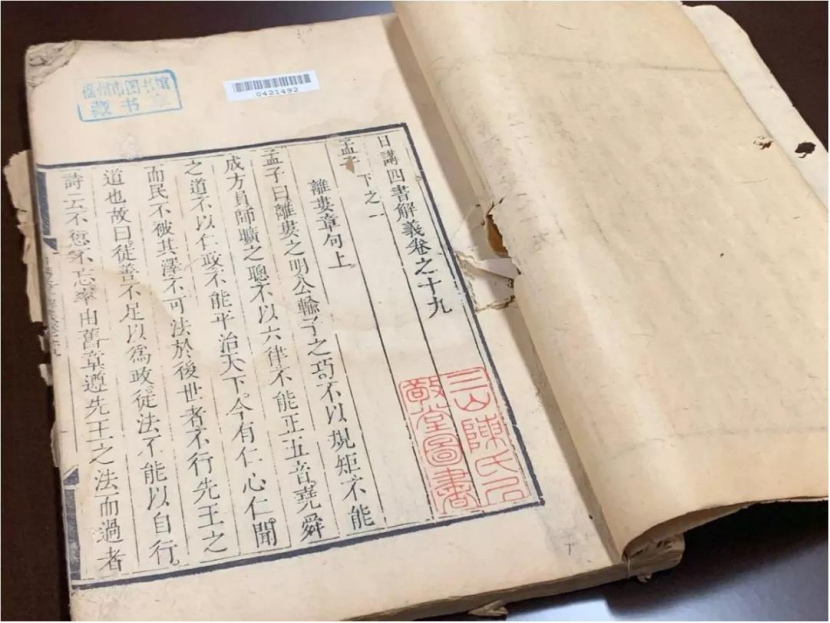 福州市图书馆
藏书章
0421492
日講四書解義卷之十九
孟子 下之一
離婁章句上
孟子曰離婁之明公輸子之巧不以規矩不能
成方員師曠之聰不以六律不能正五音堯舜
之道不以仁政不能平治天下今有仁心仁聞
而民不被其澤不可法於後世者不行先王之
道也故曰徒善不足以爲政徒法不能以自行
詩云不愆不忘率由舊章遵先王之法而過者
三山陳氏居
敬堂圖書